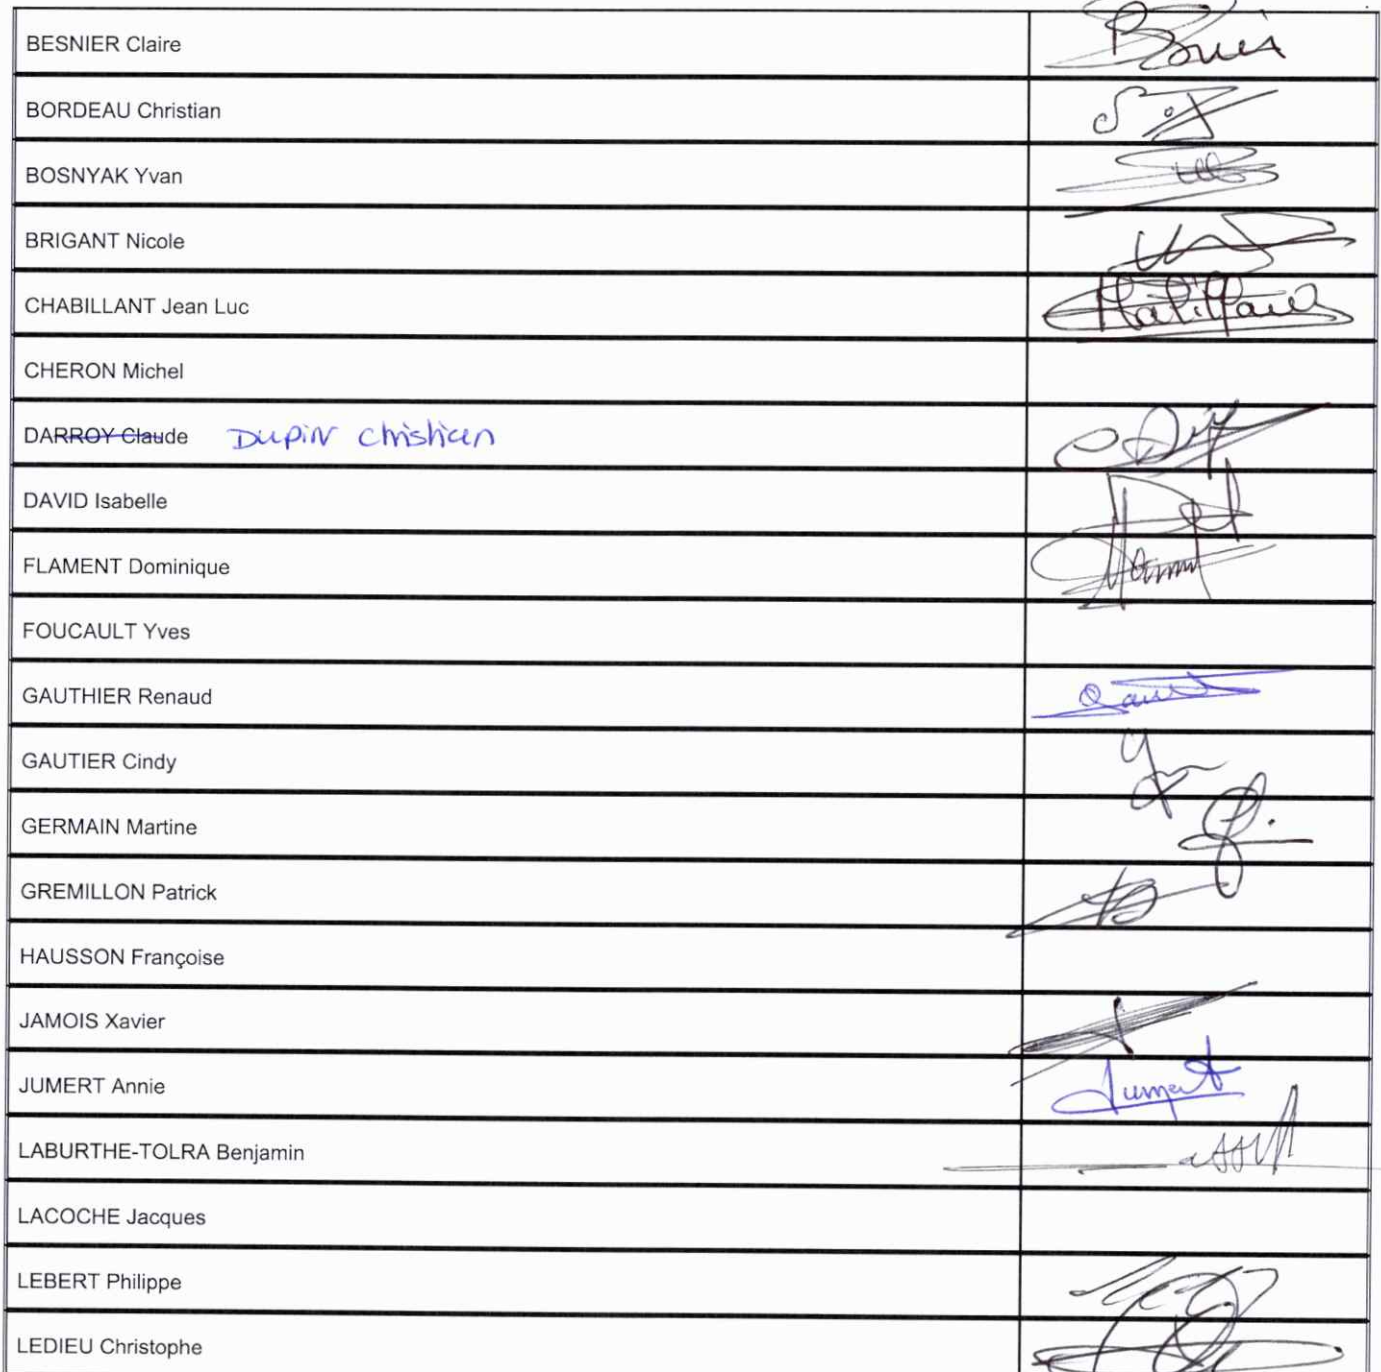 BESNIER Claire
BORDEAU Christian
BOSNYAK Yvan
BRIGANT Nicole
CHABILLANT Jean Luc
CHERON Michel
DARROY Claude Dupin Christian
DAVID Isabelle
FLAMENT Dominique
FOUCAULT Yves
GAUTHIER Renaud
GAUTIER Cindy
GERMAIN Martine
GREMILLON Patrick
HAUSSON Françoise
JAMOIS Xavier
JUMERT Annie Jumert
LABURTHE-TOLRA Benjamin
LACOCHE Jacques
LEBERT Philippe
LEDIEU Christophe